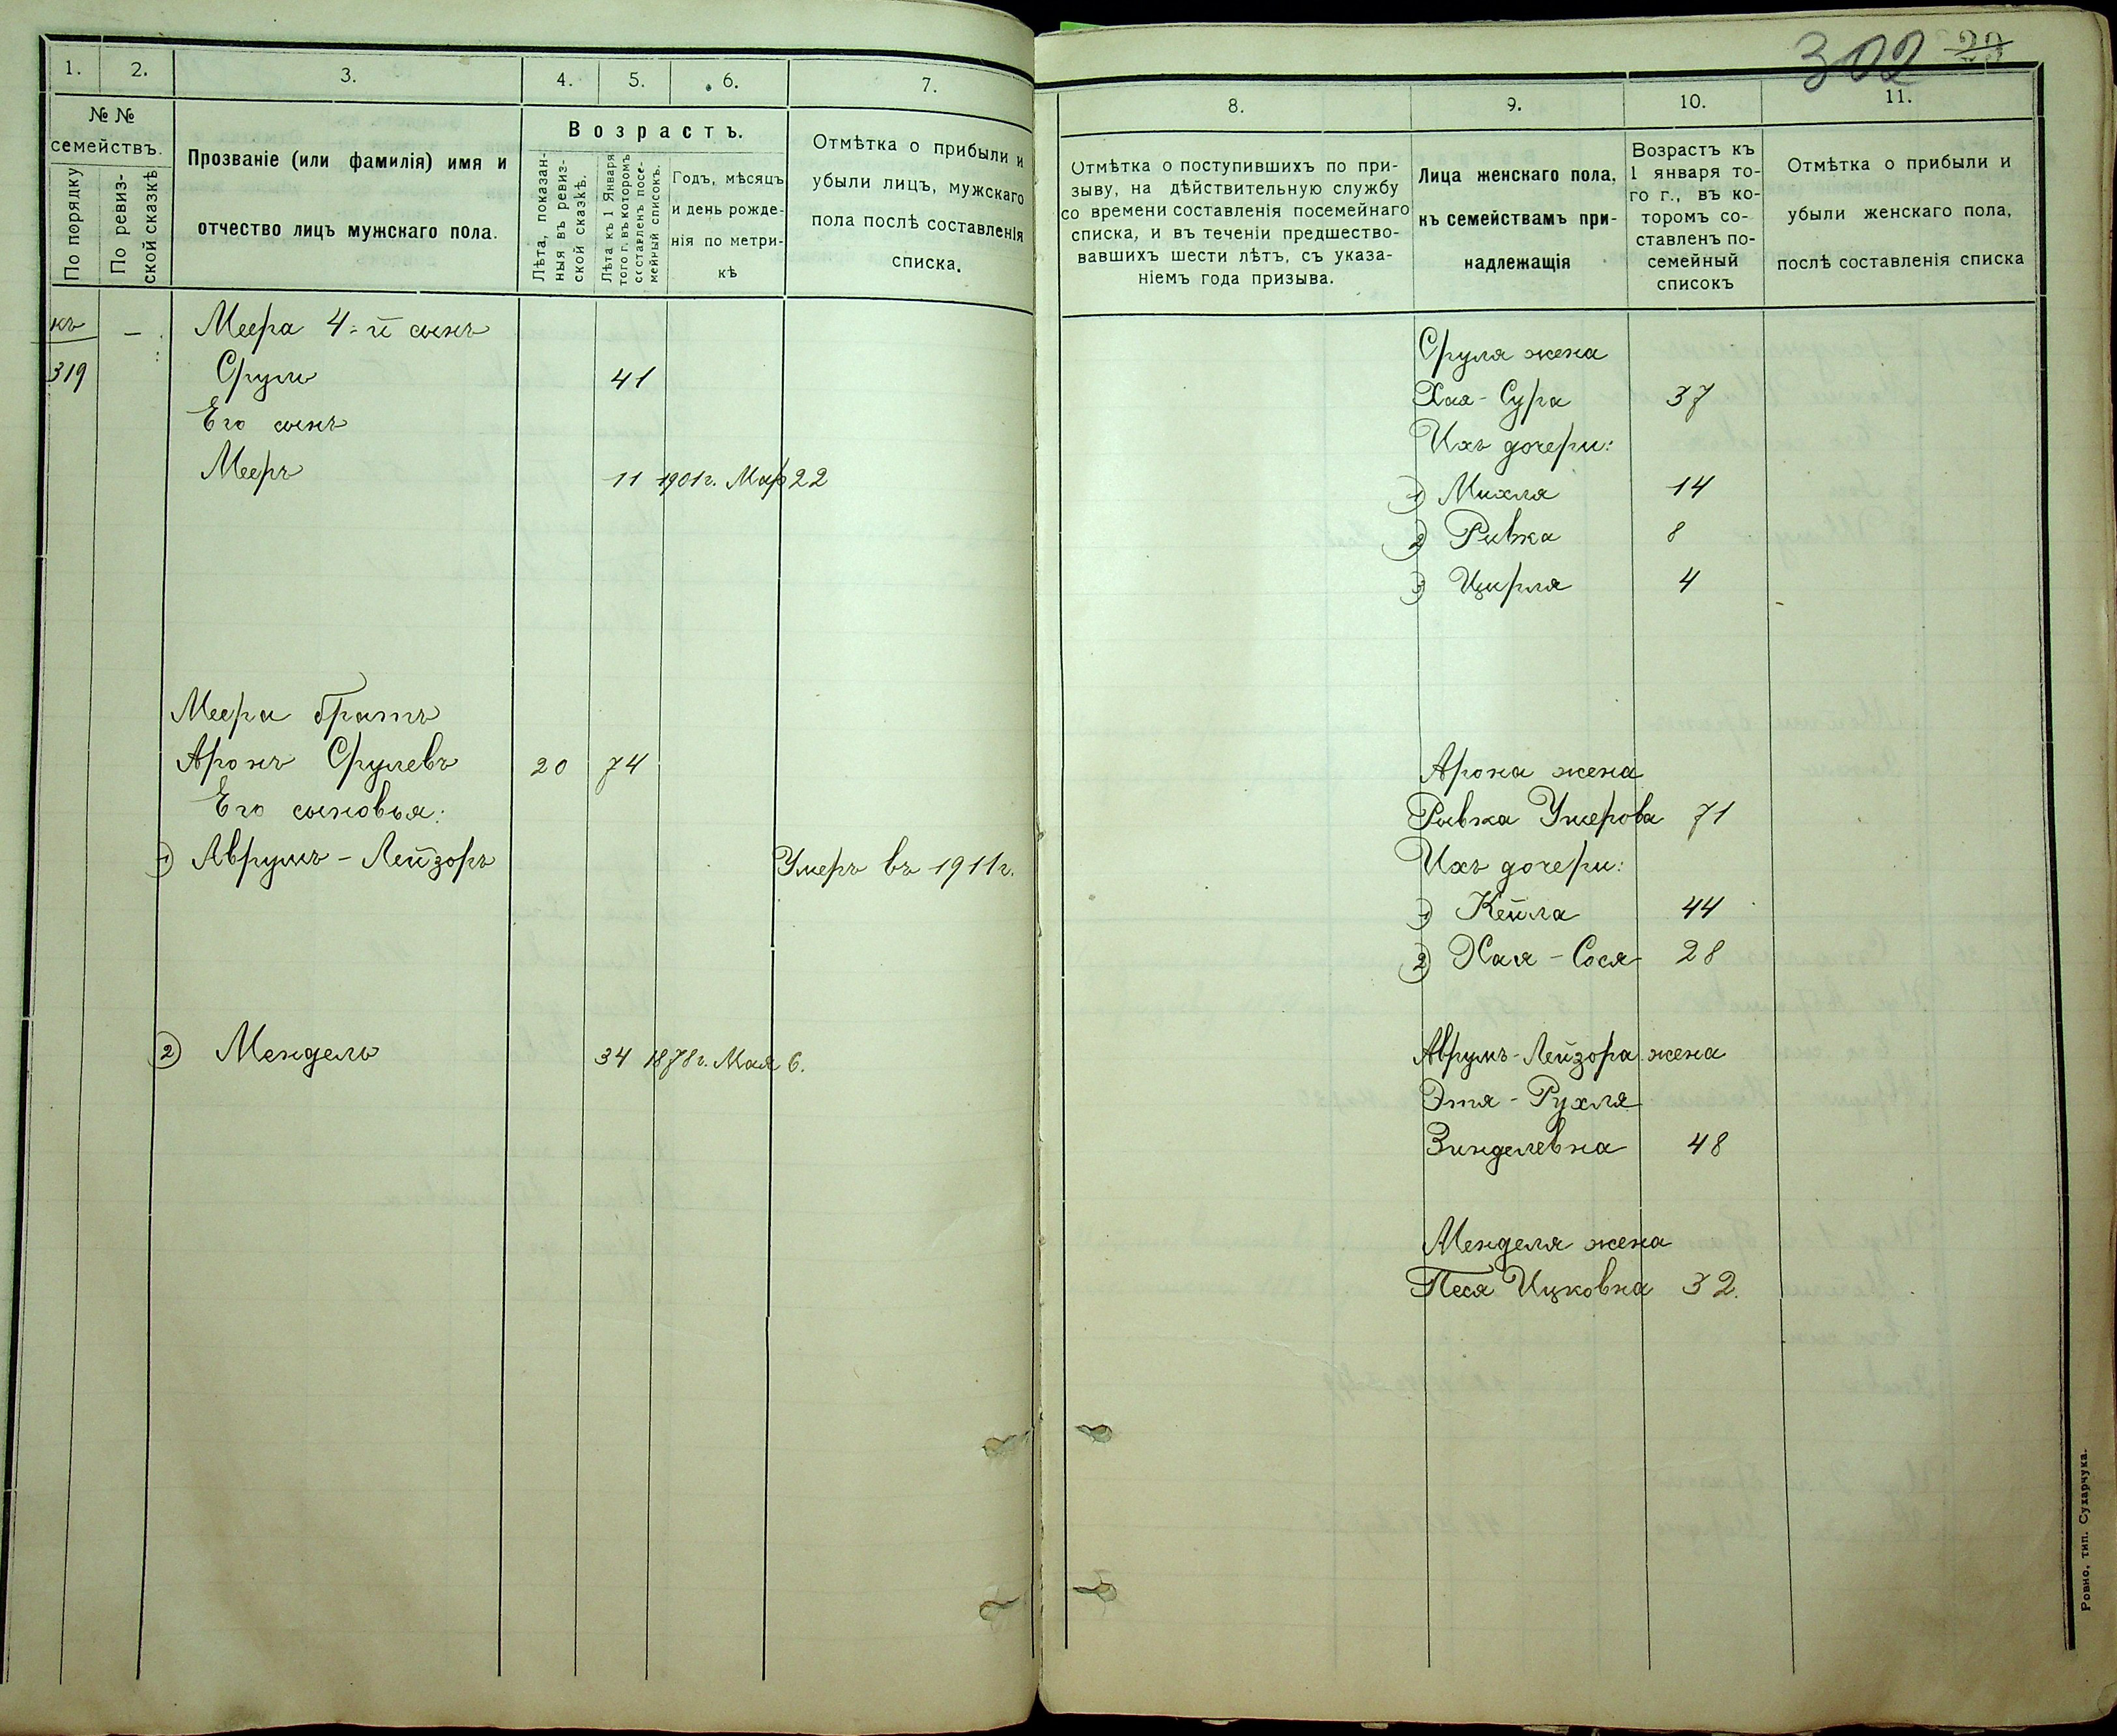 1.
2.
3.
4.
5.
6.
7.
№ №
семействъ.
По порядку
По ревиз-
ской сказкѣ
Прозваніе (или фамилія) имя и
отчество лицъ мужскаго пола.
Возрастъ.
Лѣта, показан-
ныя въ ревиз-
ской сказкѣ.
Лѣта къ 1 Января
того г. въ которомъ
составленъ посе-
мейный списокъ.
Годъ, мѣсяцъ
и день рожде-
нія по метри-
кѣ
Отмѣтка о прибыли и
убыли лицъ, мужскаго
пола послѣ составленія
списка.
къ — Меера 4-й сынъ
319 Сруль 41
Его сынъ
Мееръ 11 1901г. Мар 22
Меера братъ
Аронъ Срулевъ 20 74
Его сыновья:
1) Аврумъ-Лейзоръ Умеръ въ 1911г.
2) Мендель 34 1878г. Мая 6.
302 29
8.
9.
10.
11.
Отмѣтка о поступившихъ по при-
зыву, на дѣйствительную службу
со времени составленія посемейнаго
списка, и въ теченіи предшество-
вавшихъ шести лѣтъ, съ указа-
ніемъ года призыва.
Лица женскаго пола,
къ семействамъ при-
надлежащія
Возрастъ къ
1 января то-
го г., въ ко-
торомъ со-
ставленъ по-
семейный
списокъ
Отмѣтка о прибыли и
убыли женскаго пола,
послѣ составленія списка
Сруля жена
Хая-Сура 37
Ихъ дочери:
1) Михля 14
2) Ривка 8
3) Цирля 4
Арона жена
Ривка Умерова 71
Ихъ дочери:
1) Кейла 44
2) Хая-Сося 28
Аврумъ-Лейзора жена
Этя-Рухля
Зинделевна 48
Менделя жена
Песя Ицковна 32.
Ровно, тип. Сухарчука.